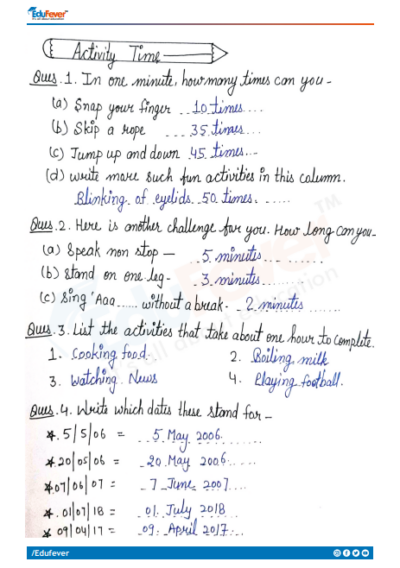 EduFever
Activity Time
Ques.1. In one minute, how many times can you-
(a) Snap your finger 10 times....
(b) Skip a rope ... 35 times...
(c) Jump up and down 45 times...
(d) Write more such fun activities in this column.
Blinking of eyelids 50 times.......
Ques.2. Here is another challenge for you. How long can you-
(a) Speak non stop — 5 minutes...........
(b) Stand on one leg- 3 minutes.......
(c) Sing 'Aaa...... without a break - 2 minutes.......
Ques.3. List the activities that take about one hour to complete.
1. Cooking food. 2. Boiling milk
3. Watching News 4. Playing football.
Ques.4. Write which dates these stand for -
*. 5/5/06 = 5 May 2006......
*20/05/06 = 20 May 2006......
*07/06/07 = 7 June 2007....
*. 01/07/18 = 01. July 2018
* 09/04/17 = 09. April 2017...
/Edufever